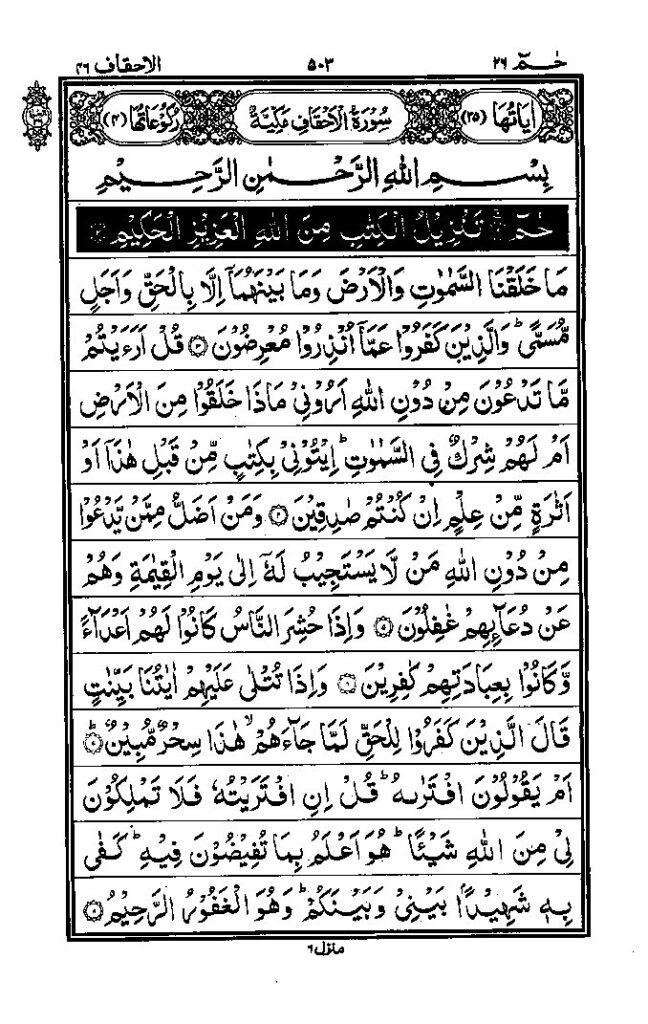 حٰمٓ ۲۶
۵۰۳
الاحقاف ۴۶
اٰيَاتُهَا (۳۵)
سُوْرَةُ الْاَحْقَافِ مَكِّيَّةٌ
رُكُوْعَاتُهَا (۴)
بِسْمِ اللهِ الرَّحْمٰنِ الرَّحِيْمِ
حٰمٓ ۱ تَنْزِيْلُ الْكِتٰبِ مِنَ اللهِ الْعَزِيْزِ الْحَكِيْمِ ۲
مَا خَلَقْنَا السَّمٰوٰتِ وَالْاَرْضَ وَمَا بَيْنَهُمَاۤ اِلَّا بِالْحَقِّ وَاَجَلٍ
مُّسَمًّى ؕ وَالَّذِيْنَ كَفَرُوْا عَمَّاۤ اُنْذِرُوْا مُعْرِضُوْنَ ۳ قُلْ اَرَءَيْتُمْ
مَّا تَدْعُوْنَ مِنْ دُوْنِ اللهِ اَرُوْنِيْ مَاذَا خَلَقُوْا مِنَ الْاَرْضِ
اَمْ لَهُمْ شِرْكٌ فِي السَّمٰوٰتِ ؕ اِيْتُوْنِيْ بِكِتٰبٍ مِّنْ قَبْلِ هٰذَاۤ اَوْ
اَثٰرَةٍ مِّنْ عِلْمٍ اِنْ كُنْتُمْ صٰدِقِيْنَ ۴ وَمَنْ اَضَلُّ مِمَّنْ يَّدْعُوْا
مِنْ دُوْنِ اللهِ مَنْ لَّا يَسْتَجِيْبُ لَهٗۤ اِلٰى يَوْمِ الْقِيٰمَةِ وَهُمْ
عَنْ دُعَآئِهِمْ غٰفِلُوْنَ ۵ وَاِذَا حُشِرَ النَّاسُ كَانُوْا لَهُمْ اَعْدَآءً
وَّكَانُوْا بِعِبَادَتِهِمْ كٰفِرِيْنَ ۶ وَاِذَا تُتْلٰى عَلَيْهِمْ اٰيٰتُنَا بَيِّنٰتٍ
قَالَ الَّذِيْنَ كَفَرُوْا لِلْحَقِّ لَمَّا جَآءَهُمْ ۙ هٰذَا سِحْرٌ مُّبِيْنٌ ۷ ؕ
اَمْ يَقُوْلُوْنَ افْتَرٰىهُ ؕ قُلْ اِنِ افْتَرَيْتُهٗ فَلَا تَمْلِكُوْنَ
لِيْ مِنَ اللهِ شَيْئًا ؕ هُوَ اَعْلَمُ بِمَا تُفِيْضُوْنَ فِيْهِ ؕ كَفٰى
بِهٖ شَهِيْدًۢا بَيْنِيْ وَبَيْنَكُمْ ؕ وَهُوَ الْغَفُوْرُ الرَّحِيْمُ ۸
منزل ۶